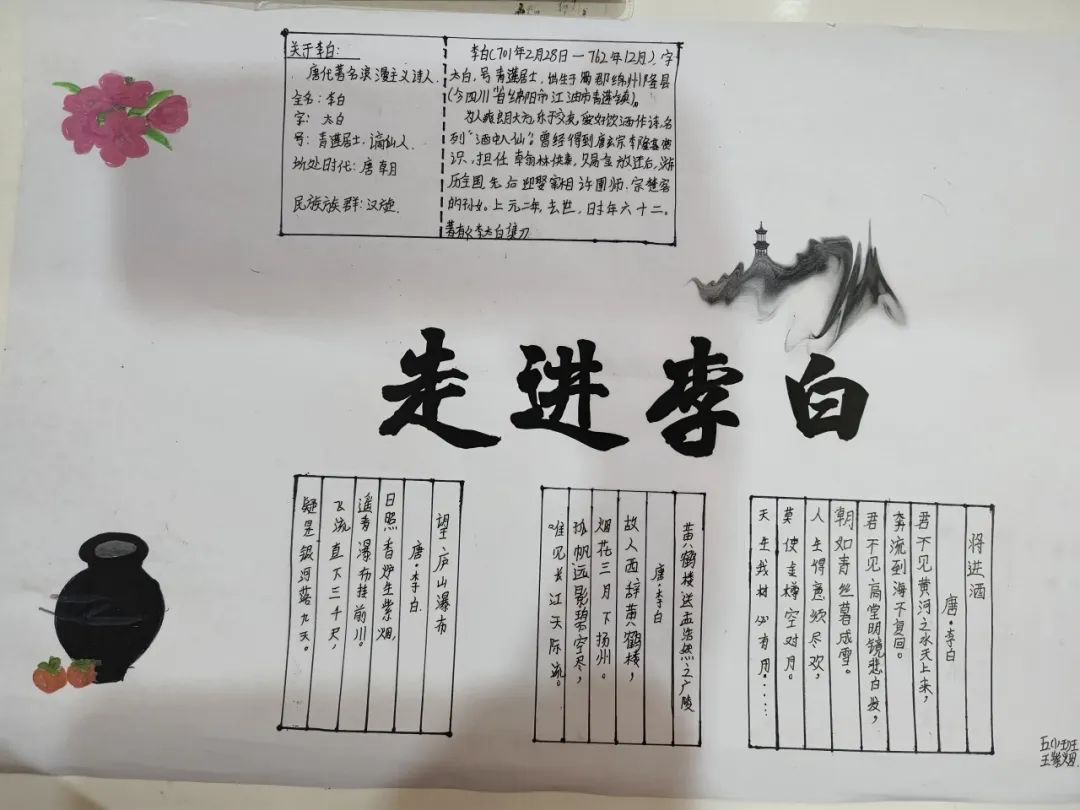 关于李白:
唐代著名浪漫主义诗人.
全名:李白
字: 太白
号:青莲居士,谪仙人
所处时代:唐朝
民族族群:汉族
李白(701年2月28日—762年12月),字
太白,号青莲居士,出生于蜀郡绵州昌隆县
(今四川省绵阳市江油市青莲镇)。
为人爽朗大方,乐于交友,爱好饮酒作诗,名
列“酒中八仙”。曾经得到唐玄宗李隆基赏
识,担任翰林供奉,赐金放还后,游
历全国,先后迎娶宰相许圉师、宗楚客
的孙女。上元二年,去世,时年六十二。
著有《李太白集》
走进李白
望庐山瀑布
唐·李白
日照香炉生紫烟,
遥看瀑布挂前川。
飞流直下三千尺,
疑是银河落九天。
黄鹤楼送孟浩然之广陵
唐·李白
故人西辞黄鹤楼,
烟花三月下扬州。
孤帆远影碧空尽,
唯见长江天际流。
将进酒
唐·李白
君不见黄河之水天上来,
奔流到海不复回。
君不见高堂明镜悲白发,
朝如青丝暮成雪。
人生得意须尽欢,
莫使金樽空对月。
天生我材必有用......
王紫烟